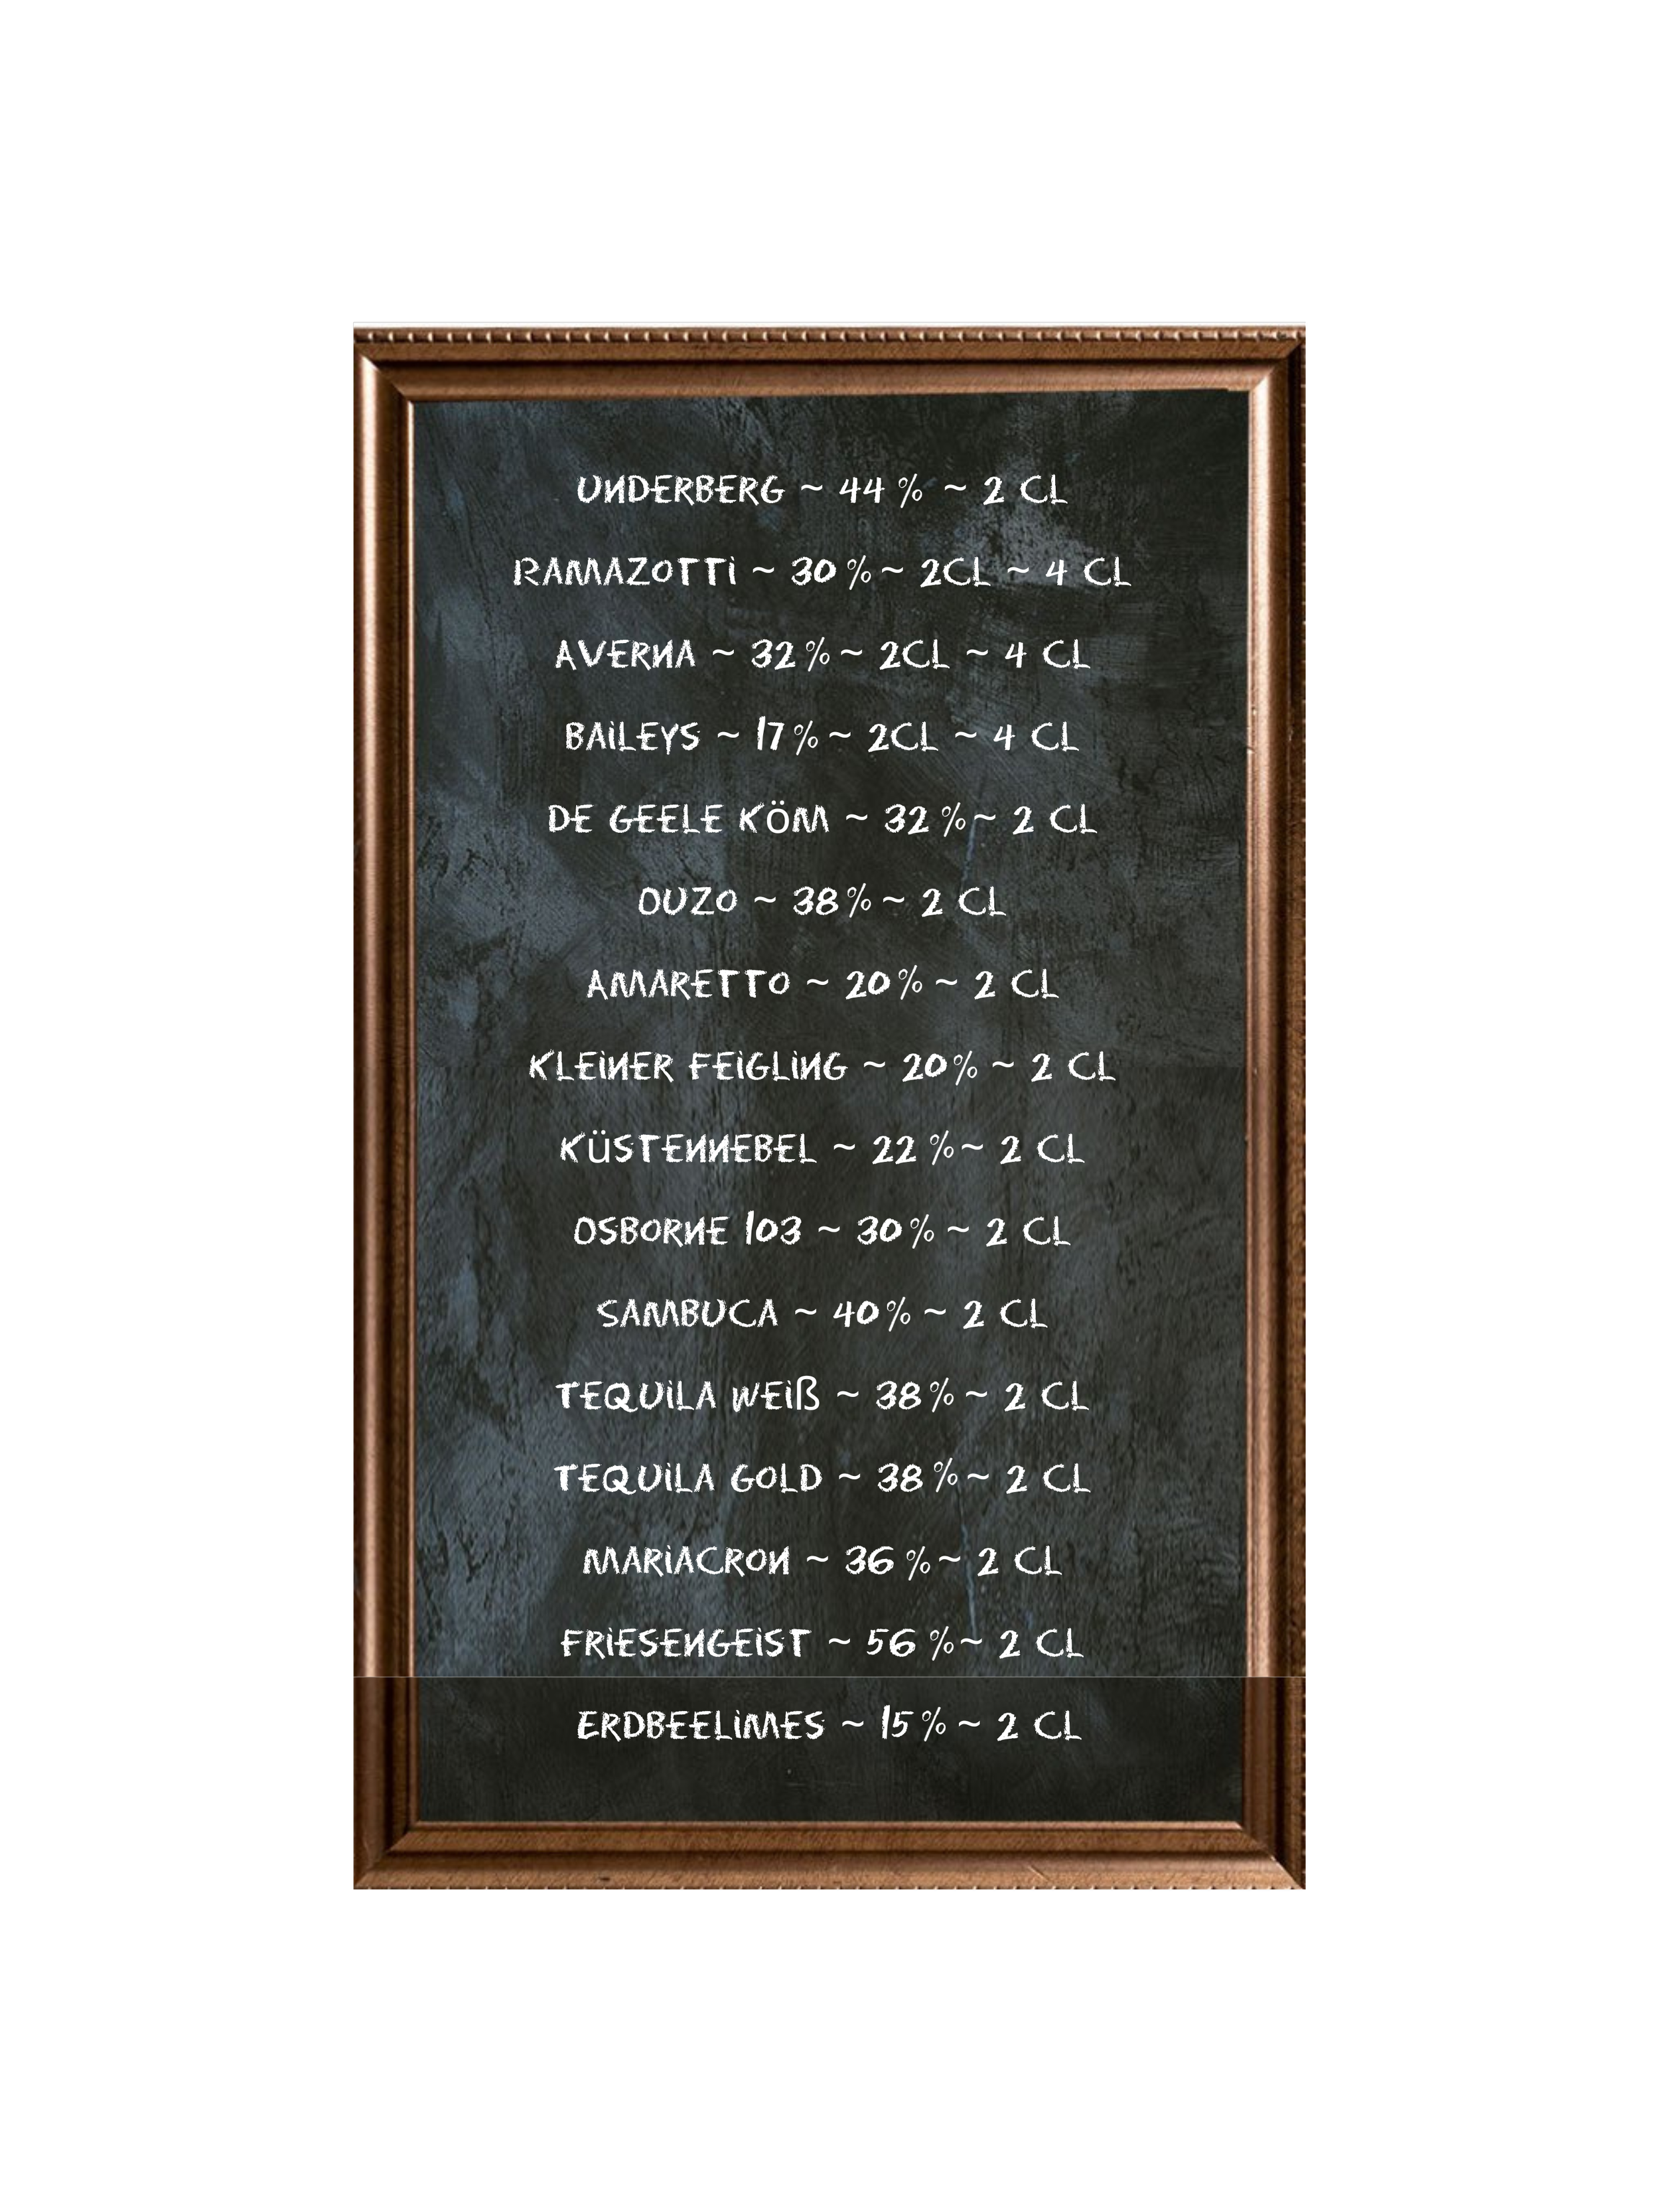 UNDERBERG ~ 44 % ~ 2 CL
RAMAZOTTI ~ 30 % ~ 2CL ~ 4 CL
AVERNA ~ 32 % ~ 2CL ~ 4 CL
BAILEYS ~ 17 % ~ 2CL ~ 4 CL
DE GEELE KÖM ~ 32 % ~ 2 CL
OUZO ~ 38 % ~ 2 CL
AMARETTO ~ 20 % ~ 2 CL
KLEINER FEIGLING ~ 20 % ~ 2 CL
KÜSTENNEBEL ~ 22 % ~ 2 CL
OSBORNE 103 ~ 30 % ~ 2 CL
SAMBUCA ~ 40 % ~ 2 CL
TEQUILA WEIß ~ 38 % ~ 2 CL
TEQUILA GOLD ~ 38 % ~ 2 CL
MARIACRON ~ 36 % ~ 2 CL
FRIESENGEIST ~ 56 % ~ 2 CL
ERDBEELIMES ~ 15 % ~ 2 CL